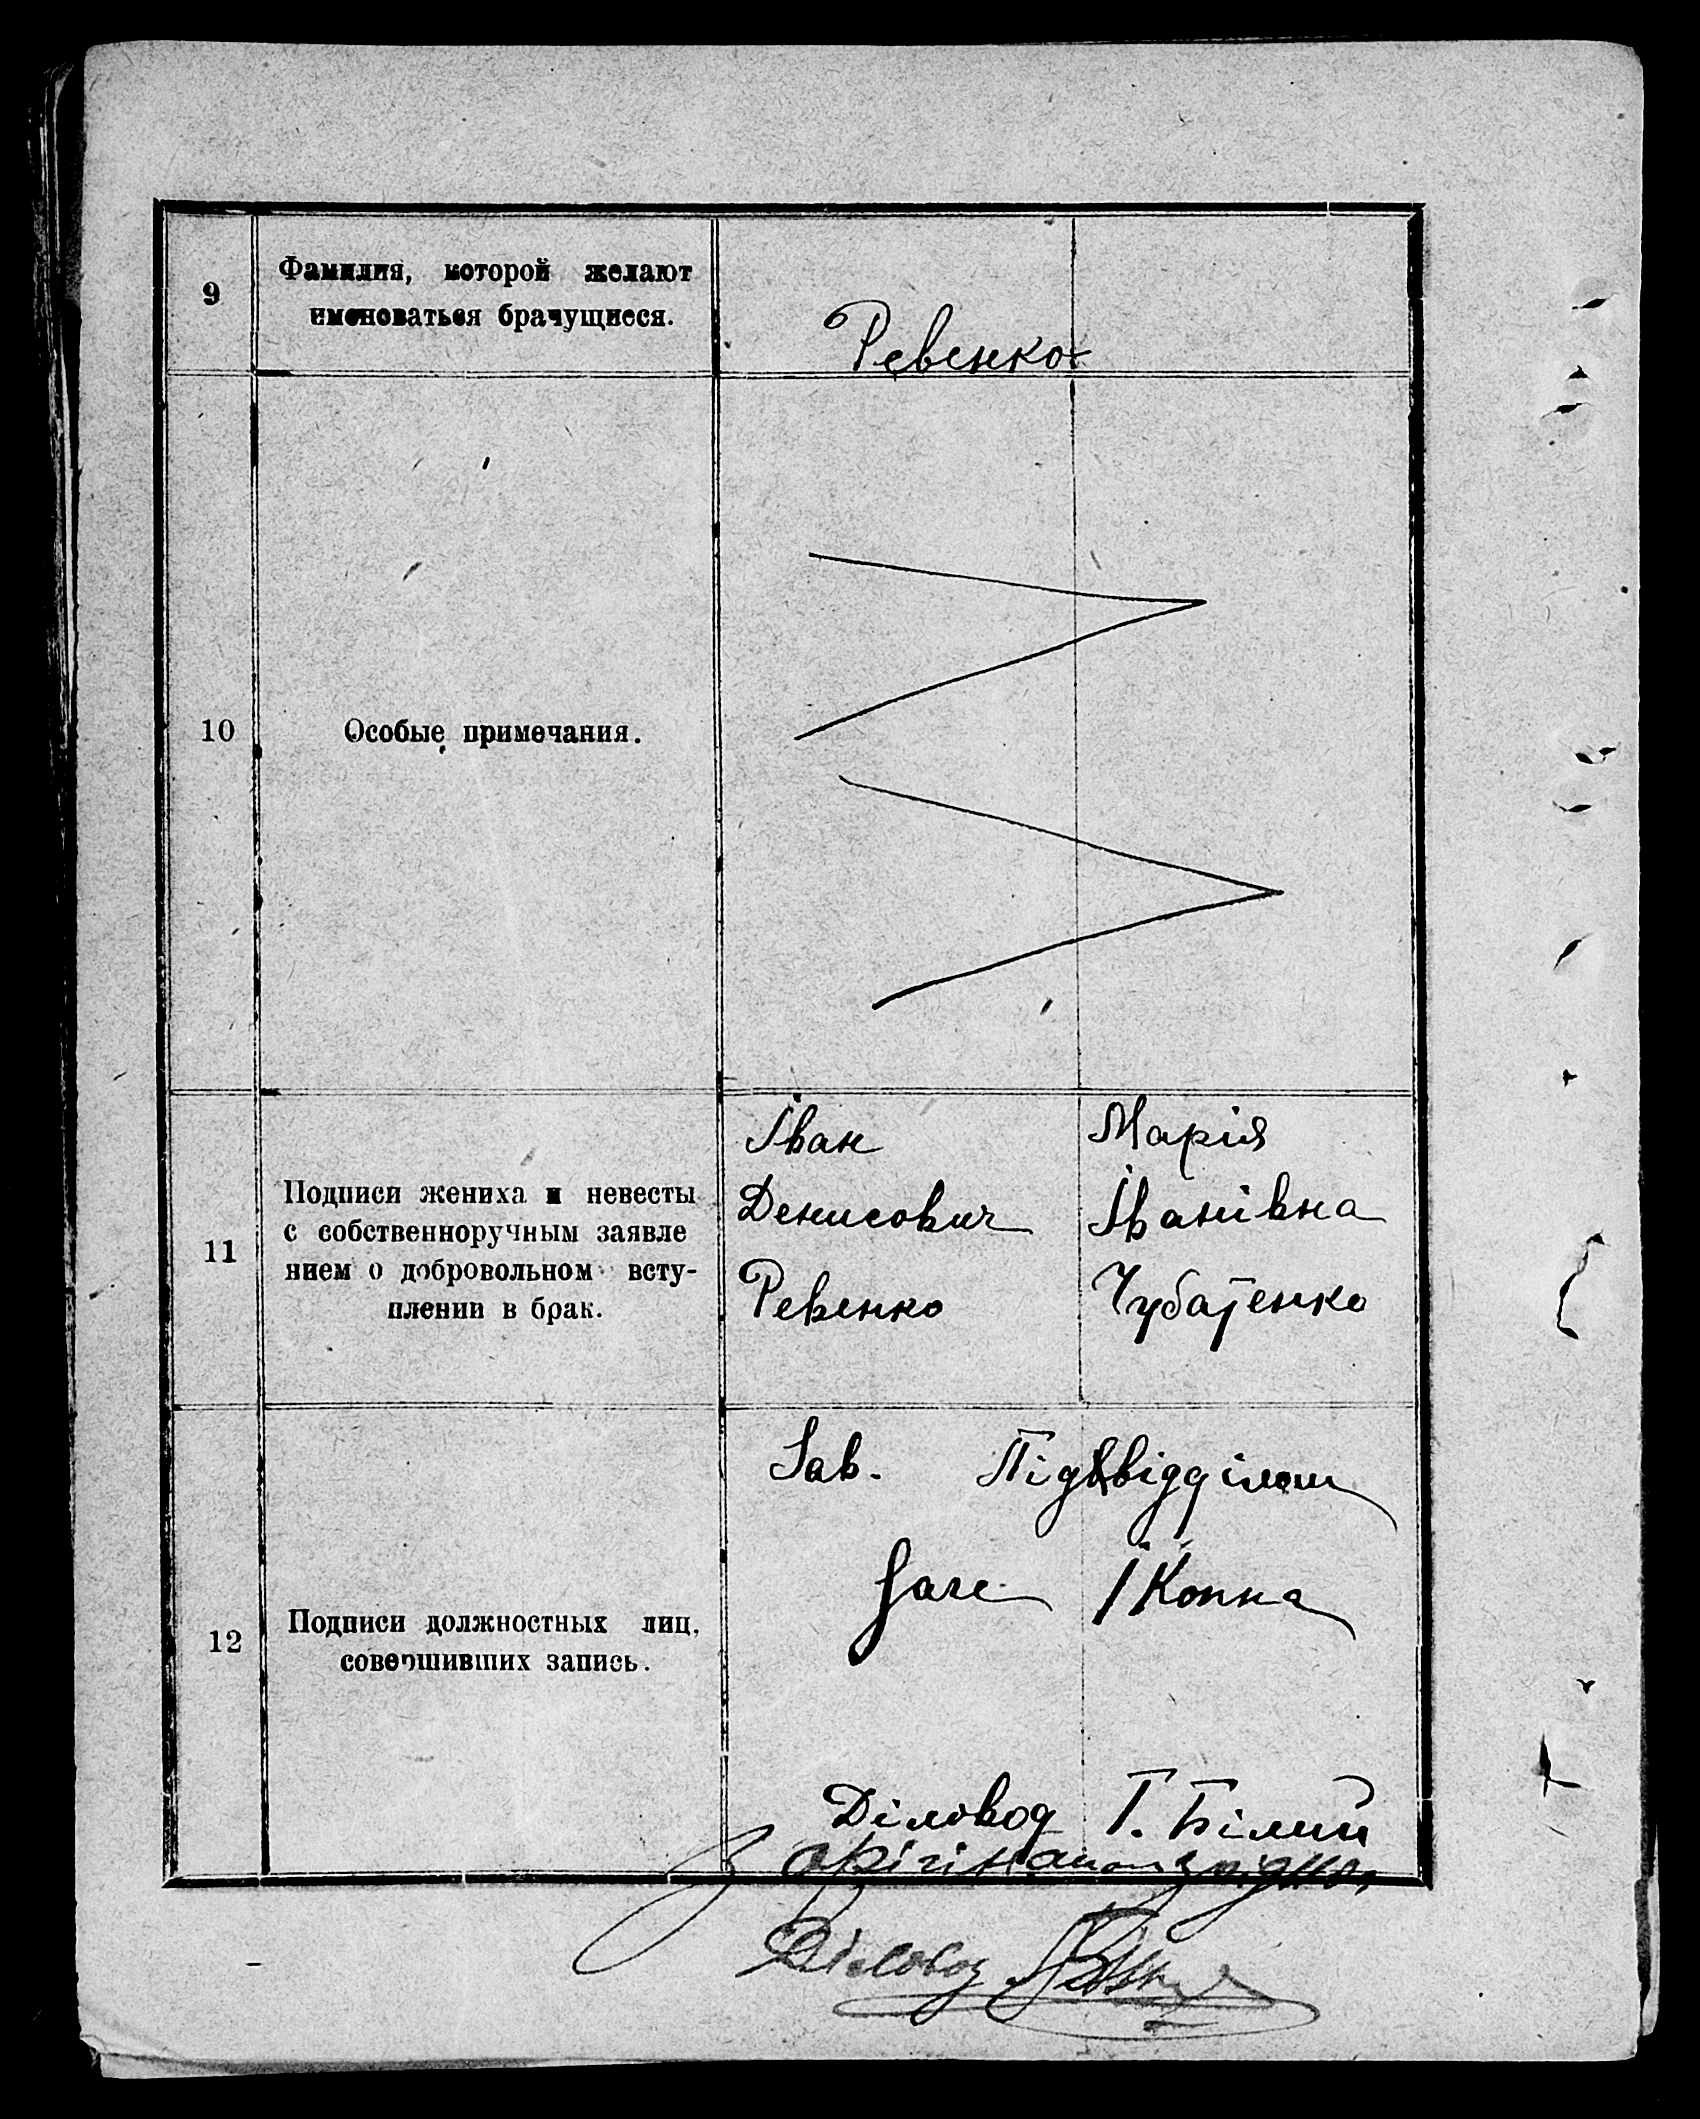 9
Фамилия, которой желают
именоваться брачущиеся.
Ревенко
10
Особые примечания.
11
Подписи жениха и невесты
с собственноручным заявле
нием о добровольном всту-
плении в брак.
Іван
Денисович
Ревенко
Марія
Іванівна
Чубатенко
12
Подписи должностных лиц,
совершивших запись.
Зав. Підвідділом
Загс Копна
Діловод Г. Білий
З орігіналом згідно,
Діловод